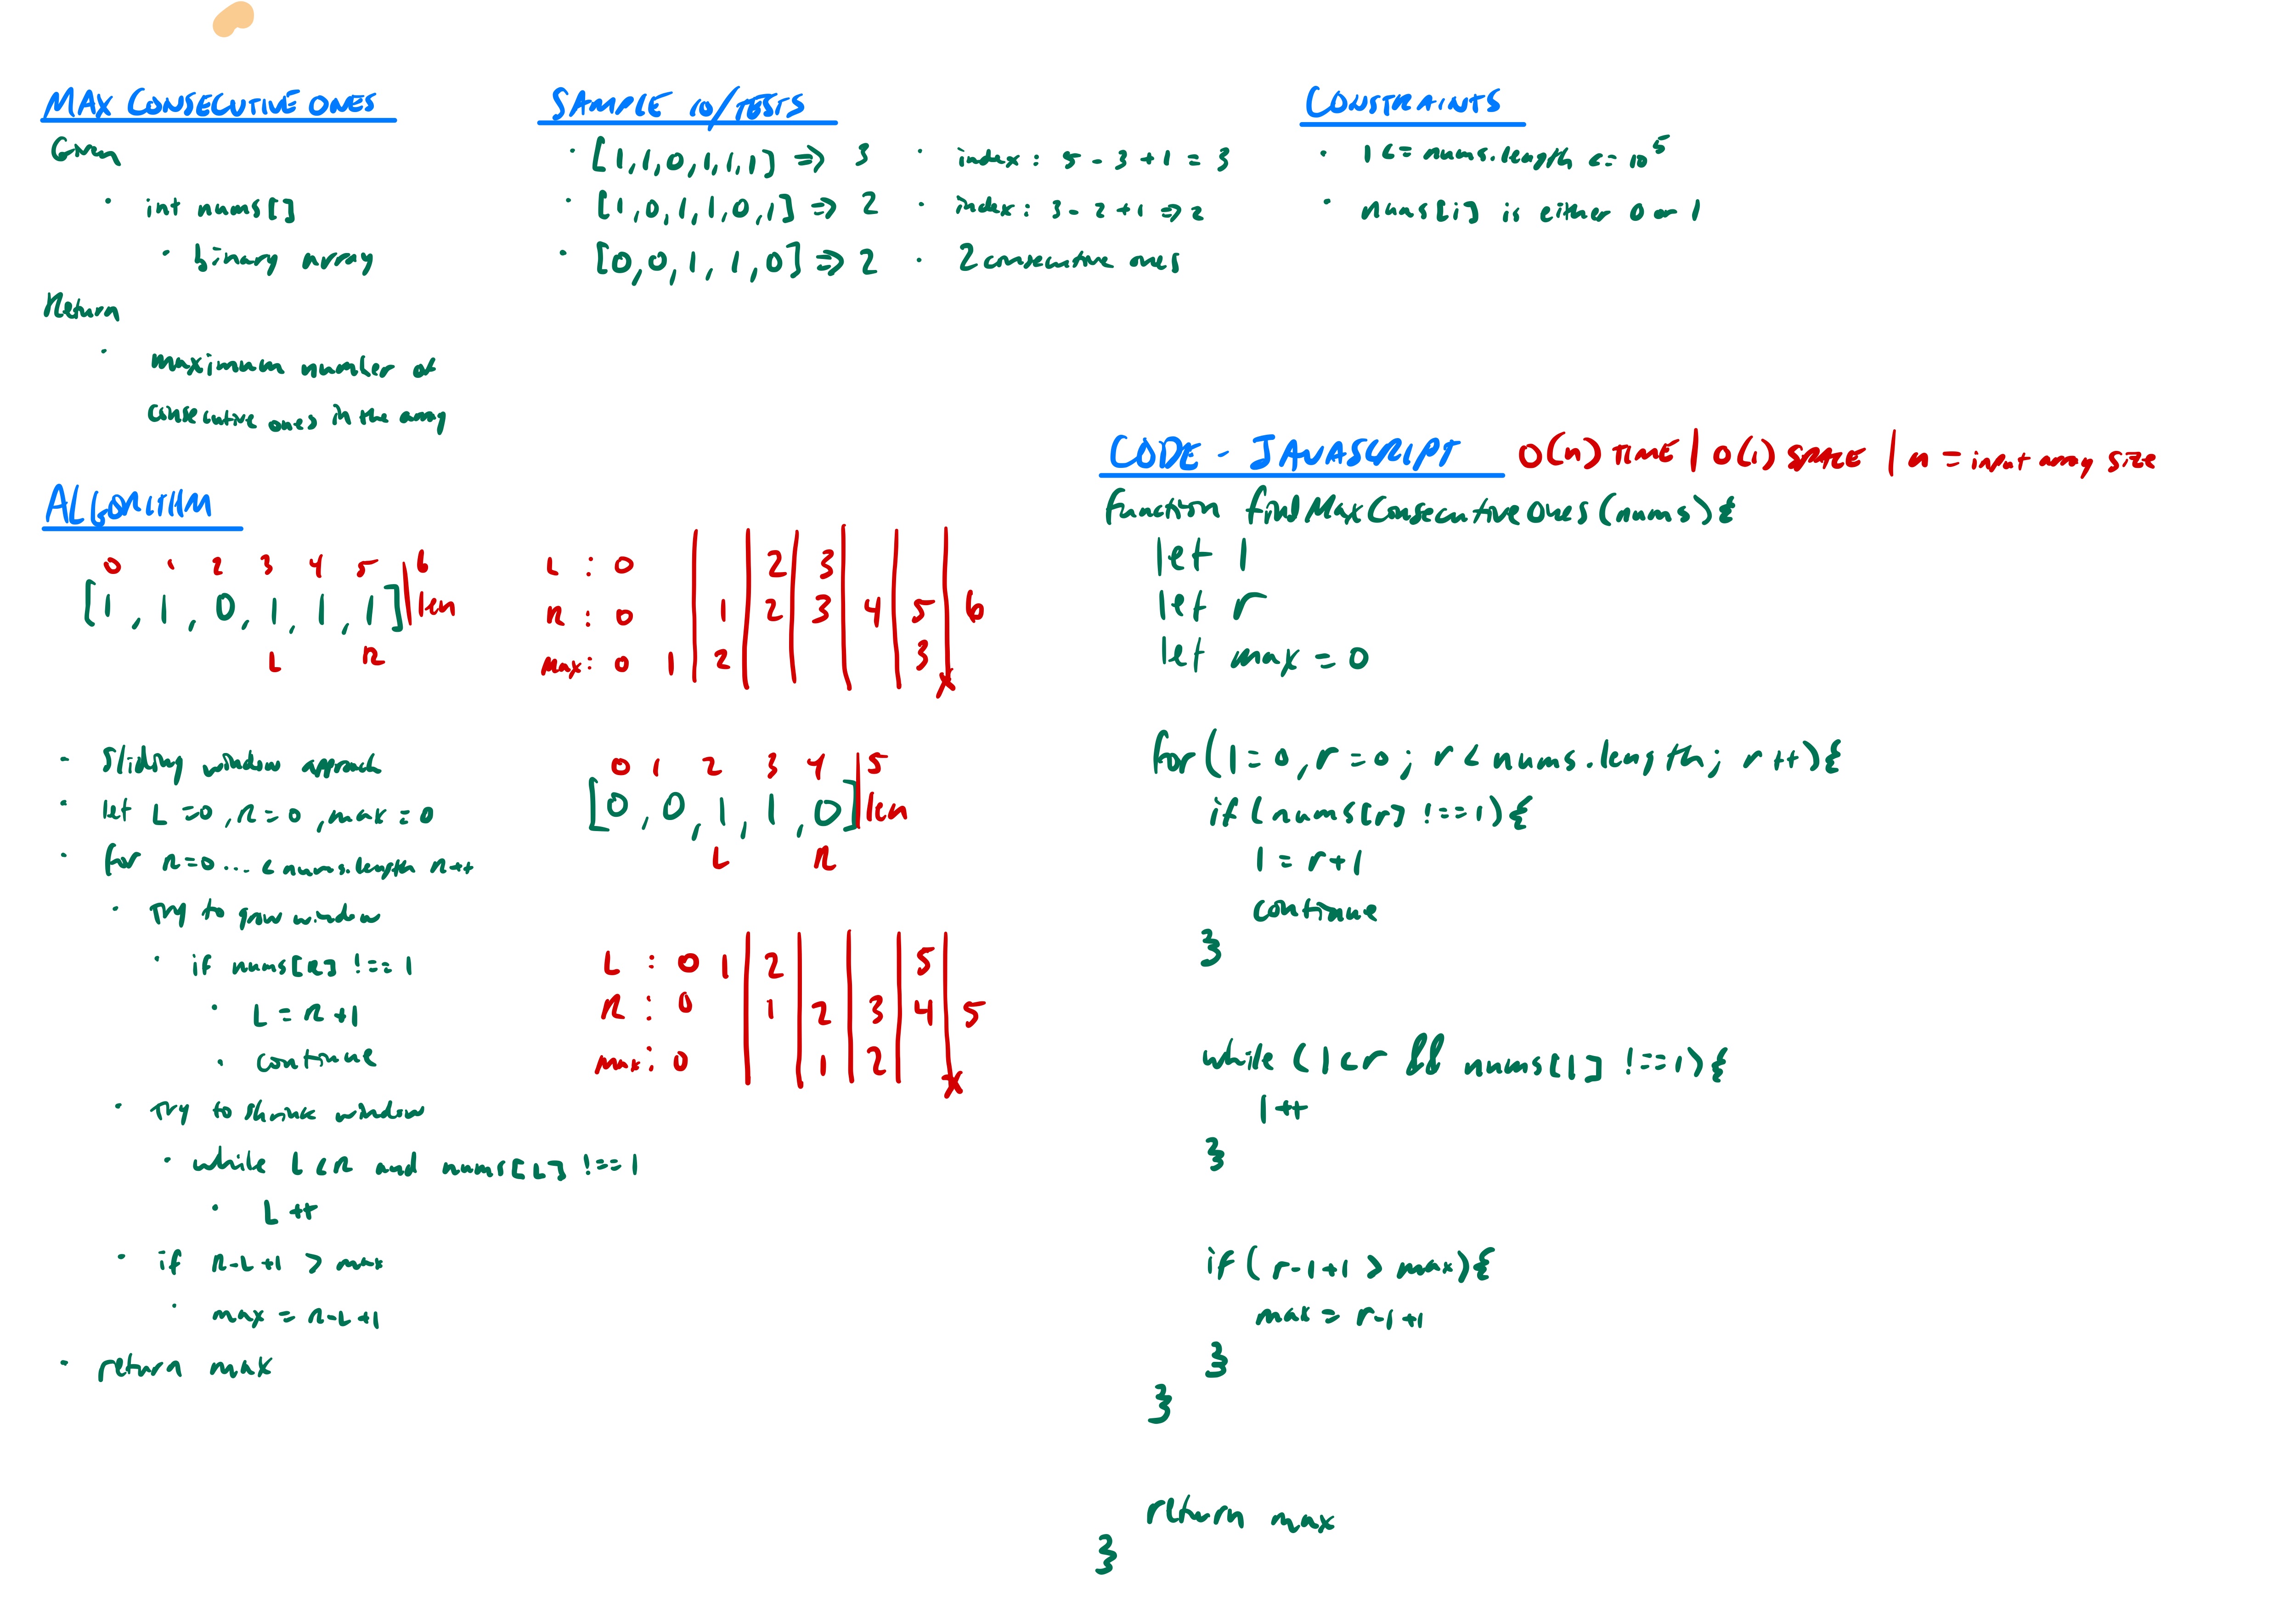 MAX CONSECUTIVE ONES
Given
· int nums[]
· binary array
Return
· maximum number of
consecutive ones in the array
SAMPLE IO/TESTS
· [1,1,0,1,1,1] => 3 · index: 5 - 3 + 1 = 3
· [1,0,1,1,0,1] => 2 · index: 3 - 2 + 1 => 2
· [0,0,1,1,0] => 2 · 2 consecutive ones
CONSTRAINTS
· 1 <= nums.length <= 10^5
· nums[i] is either 0 or 1
ALGORITHM
0 1 2 3 4 5 | 6
[1, 1, 0, 1, 1, 1] | len
L R
L : 0 | | 2 | 3 | | |
R : 0 | 1 | 2 | 3 | 4 | 5 | 6
max: 0 1 | 2 | | | | 3 | x
· Sliding window approach
· let L = 0, R = 0, max = 0
· for R=0... < nums.length R++
· Try to grow window
· if nums[R] !== 1
· L = R + 1
· continue
· Try to shrink window
· while L < R and nums[L] !== 1
· L++
· if R-L+1 > max
· max = R-L+1
· return max
0 1 2 3 4 | 5
[0, 0, 1, 1, 0] | len
L R
L : 0 1 | 2 | | | 5 |
R : 0 | 1 | 2 | 3 | 4 | 5
max: 0 | | 1 | 2 | | x
CODE - JAVASCRIPT O(n) TIME | O(1) SPACE | n = input array size
function findMaxConsecutiveOnes(nums){
let l
let r
let max = 0
for(l=0, r=0; r < nums.length; r++){
if(nums[r] !== 1){
l = r+1
continue
}
while (l<r && nums[l] !== 1){
l++
}
if (r-l+1 > max){
max = r-l+1
}
}
return max
}